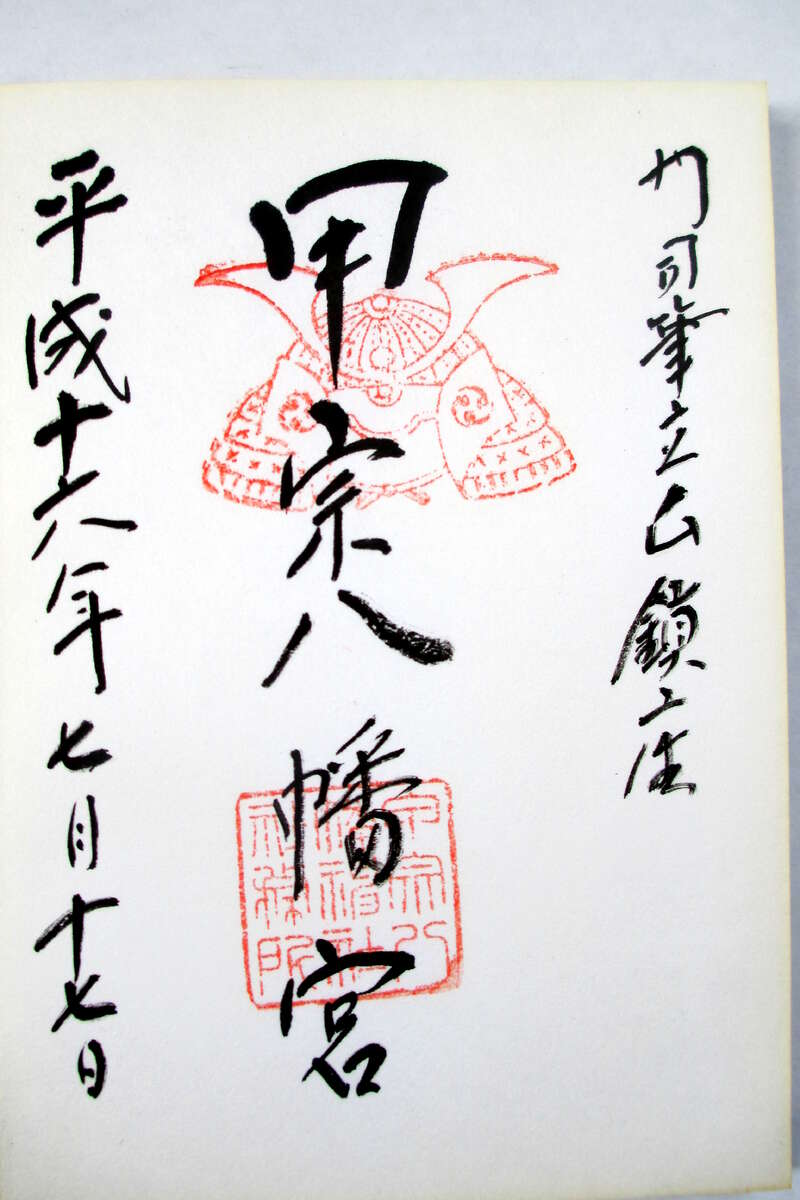 門司筆立山鎮座
甲宗八幡宮
甲宗八
幡神社
社務所
平成十六年七月十七日